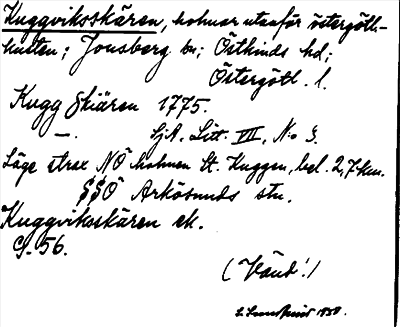 Kuggviksskären, holmar utanför östergötl.-
kusten; Jonsberg sn; Östkinds hd;
Östergötl. l.
Kugg Skiären 1775.
—. SjA. Litt. VII, No 3.
Läge strax NÖ holmen St. Kuggen, bel. 2,7 km.
SSÖ Arkösunds stn.
Kuggviksskären ek.
G. 56.
(Vänd!)
1930.